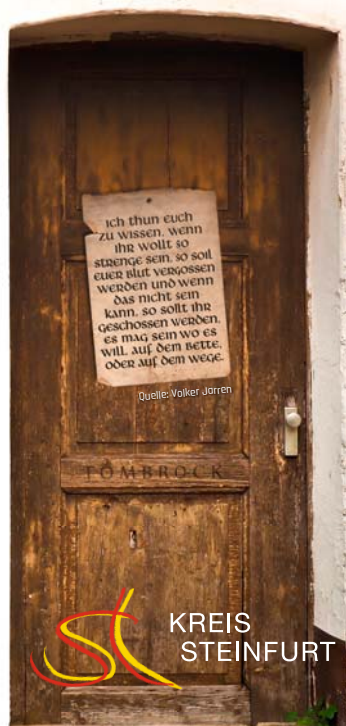 Ich thun euch
zu wissen, wenn
ihr wollt so
strenge sein, so soll
euer Blut vergossen
werden und wenn
das nicht sein
kann, so sollt ihr
geschossen werden,
es mag sein wo es
will, auf dem Bette,
oder auf dem Wege.
Quelle: Volker Jarren
TOMBROCK
KREIS
STEINFURT